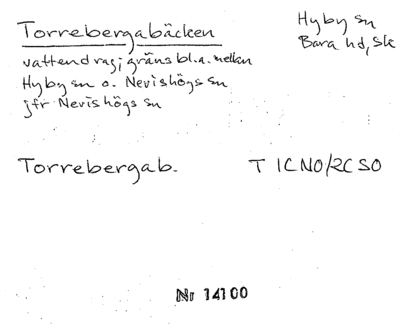 Torrebergabäcken
Hyby sn
Bara hd, Sk
vattendrag i gräns bl.a. mellan
Hyby sn o. Nevishögs sn
jfr Nevishögs sn
Torrebergab.
T 1CNO/2CSO
Nr 14100